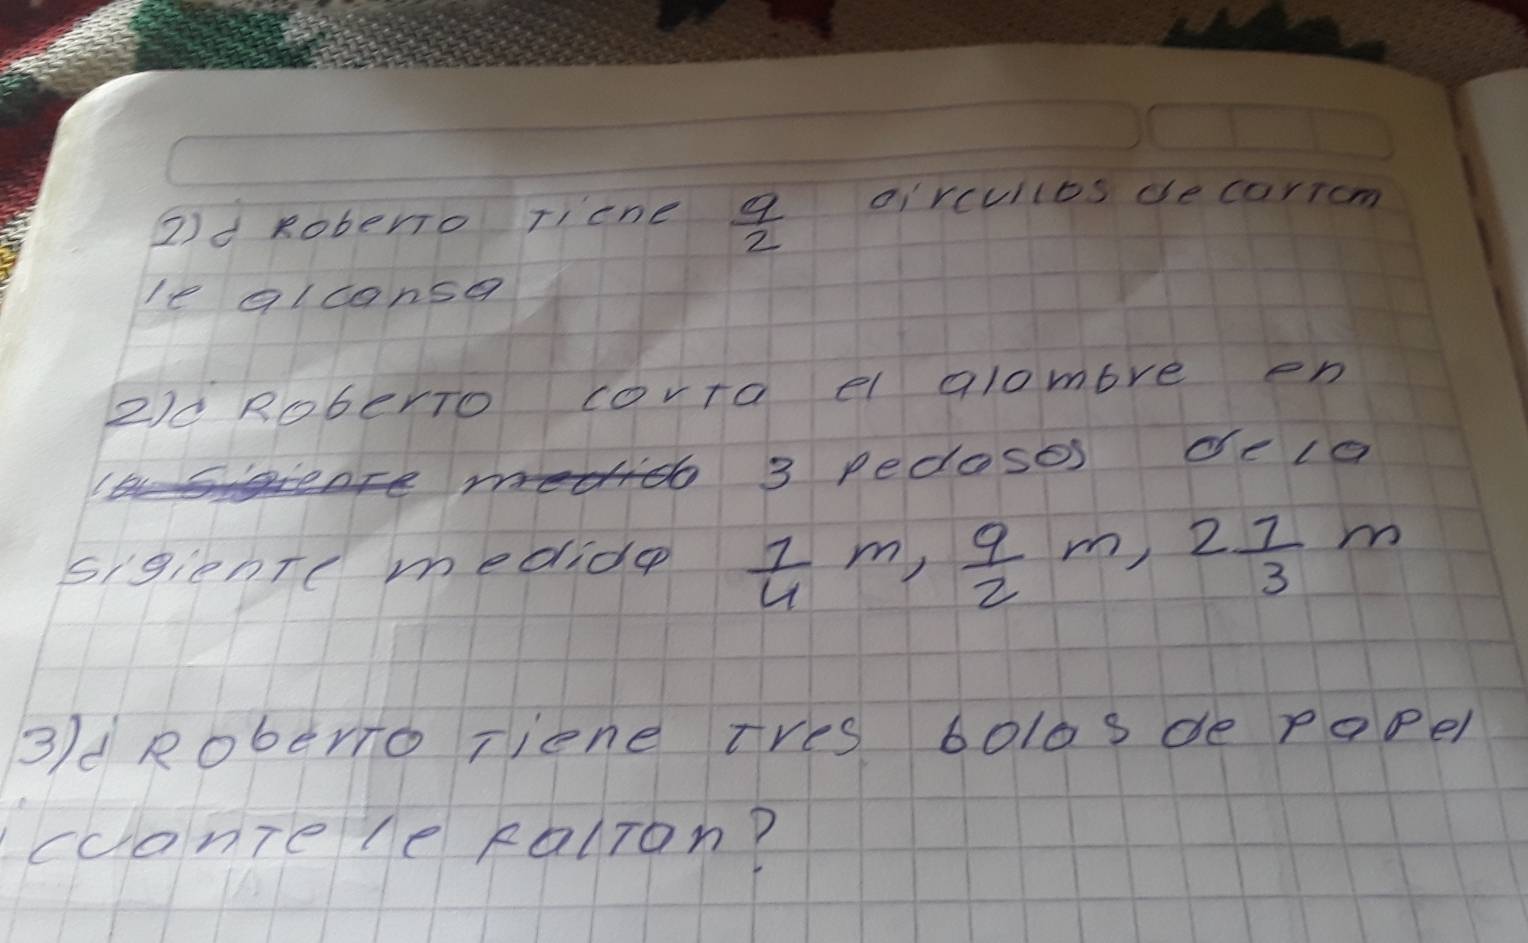 1)¿ Roberto tiene 9/2 circullos de cartom
le alcansa
2)¿ Roberto corta el alambre en
la sigiente medida 3 pedasos de la
sigiente medida 1/4 m, 9/2 m, 2 1/3 m
3)¿ Roberto tiene tres bolas de papel
¿cuante le faltan?